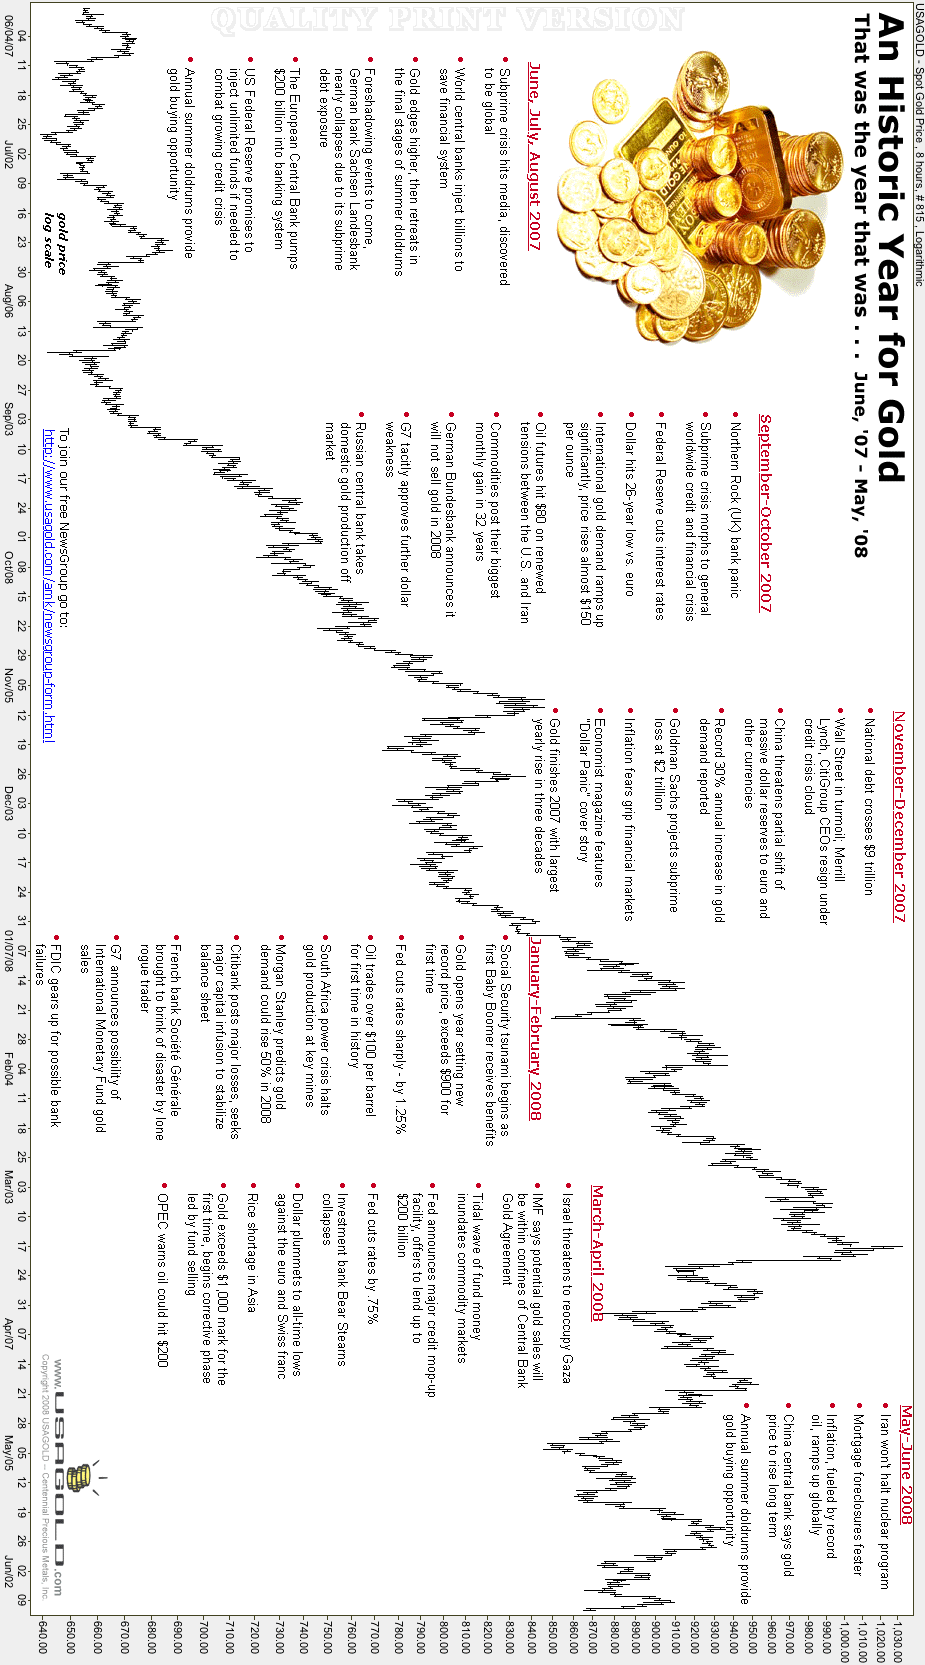 USAGOLD - Spot Gold Price , 8 hours, # 815 , Logarithmic
An Historic Year for Gold
That was the year that was . . . June, '07 - May, '08
QUALITY PRINT VERSION
June, July, August 2007
Subprime crisis hits media, discovered
to be global
World central banks inject billions to
save financial system
Gold edges higher, then retreats in
the final stages of summer doldrums
Foreshadowing events to come,
German bank Sachsen Landesbank
nearly collapses due to its subprime
debt exposure
The European Central Bank pumps
$200 billion into banking system
US Federal Reserve promises to
inject unlimited funds if needed to
combat growing credit crisis
Annual summer doldrums provide
gold buying opportunity
gold price
log scale
September-October 2007
Northern Rock (UK) bank panic
Subprime crisis morphs to general
worldwide credit and financial crisis
Federal Reserve cuts interest rates
Dollar hits 26-year low vs. euro
International gold demand ramps up
significantly, price rises almost $150
per ounce
Oil futures hit $80 on renewed
tensions between the U.S. and Iran
Commodities post their biggest
monthly gain in 32 years
German Bundesbank announces it
will not sell gold in 2008
G7 tacitly approves further dollar
weakness
Russian central bank takes
domestic gold production off
market
To join our free NewsGroup go to:
http://www.usagold.com/amk/newsgroup-form.html
November-December 2007
National debt crosses $9 trillion
Wall Street in turmoil; Merrill
Lynch, CitiGroup CEOs resign under
credit crisis cloud
China threatens partial shift of
massive dollar reserves to euro and
other currencies
Record 30% annual increase in gold
demand reported
Goldman Sachs projects subprime
loss at $2 trillion
Inflation fears grip financial markets
Economist magazine features
"Dollar Panic" cover story
Gold finishes 2007 with largest
yearly rise in three decades
January-February 2008
Social Security tsunami begins as
first Baby Boomer receives benefits
Gold opens year setting new
record price, exceeds $900 for
first time
Fed cuts rates sharply - by 1.25%
Oil trades over $100 per barrel
for first time in history
South Africa power crisis halts
gold production at key mines
Morgan Stanley predicts gold
demand could rise 50% in 2008
Citibank posts major losses, seeks
major capital infusion to stabilize
balance sheet
French bank Société Générale
brought to brink of disaster by lone
rogue trader
G7 announces possibility of
International Monetary Fund gold
sales
FDIC gears up for possible bank
failures
March-April 2008
Israel threatens to reoccupy Gaza
IMF says potential gold sales will
be within confines of Central Bank
Gold Agreement
Tidal wave of fund money
inundates commodity markets
Fed announces major credit mop-up
facility, offers to lend up to
$200 billion
Fed cuts rates by .75%
Investment bank Bear Stearns
collapses
Dollar plummets to all-time lows
against the euro and Swiss franc
Rice shortage in Asia
Gold exceeds $1,000 mark for the
first time, begins corrective phase
led by fund selling
OPEC wants oil could hit $200
May-June 2008
Iran won't halt nuclear program
Mortgage foreclosures fester
Inflation, fueled by record
oil, ramps up globally
China central bank says gold
price to rise long term
Annual summer doldrums provide
gold buying opportunity
www.USAGOLD.com
Copyright 2008 USAGOLD – Centennial Precious Metals, Inc.
1,030.00
1,020.00
1,010.00
1,000.00
990.00
980.00
970.00
960.00
950.00
940.00
930.00
920.00
910.00
900.00
890.00
880.00
870.00
860.00
850.00
840.00
830.00
820.00
810.00
800.00
790.00
780.00
770.00
760.00
750.00
740.00
730.00
720.00
710.00
700.00
690.00
680.00
670.00
660.00
650.00
640.00
04 11 18 25 02 09 16 23 30 06 13 20 27 03 10 17 24 01 08 15 22 29 05 12 19 26 03 10 17 24 31 07 14 21 28 04 11 18 25 03 10 17 24 31 07 14 21 28 05 12 19 26 02 09
06/04/07 Jul/02 Aug/06 Sep/03 Oct/08 Nov/05 Dec/03 01/07/08 Feb/04 Mar/03 Apr/07 May/05 Jun/02